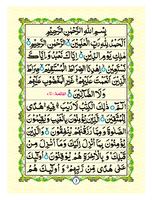 بِسْمِ اللهِ الرَّحْمٰنِ الرَّحِيْمِ
اَلْحَمْدُ لِلّٰهِ رَبِّ الْعٰلَمِيْنَ الرَّحْمٰنِ الرَّحِيْمِ
مٰلِكِ يَوْمِ الدِّيْنِ اِيَّاكَ نَعْبُدُ وَاِيَّاكَ
نَسْتَعِيْنُ اِهْدِنَا الصِّرَاطَ الْمُسْتَقِيْمَ صِرَاطَ
الَّذِيْنَ اَنْعَمْتَ عَلَيْهِمْ غَيْرِ الْمَغْضُوْبِ عَلَيْهِمْ
وَلَا الضَّآلِّيْنَ
الٓمّٓ ذٰلِكَ الْكِتٰبُ لَا رَيْبَ فِيْهِ هُدًى
لِّلْمُتَّقِيْنَ الَّذِيْنَ يُؤْمِنُوْنَ بِالْغَيْبِ وَيُقِيْمُوْنَ
الصَّلٰوةَ وَمِمَّا رَزَقْنٰهُمْ يُنْفِقُوْنَ وَالَّذِيْنَ
يُؤْمِنُوْنَ بِمَآ اُنْزِلَ اِلَيْكَ وَمَآ اُنْزِلَ مِنْ قَبْلِكَ
وَبِالْاٰخِرَةِ هُمْ يُوْقِنُوْنَ اُولٰٓئِكَ
عَلٰى هُدًى مِّنْ رَّبِّهِمْ وَاُولٰٓئِكَ هُمُ